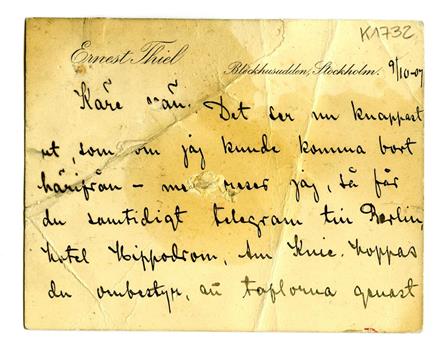 K1732
Ernest Thiel
Blockhusudden, Stockholm. 9/10-07
Käre Det ser nu knappast
ut, som om jag kunde komma bort
härifrån – reser jag, så får
du samtidigt telegram till Berlin,
hotel Hippodrom, Am Knie. Hoppas
du ombestyr, att taflorna genast